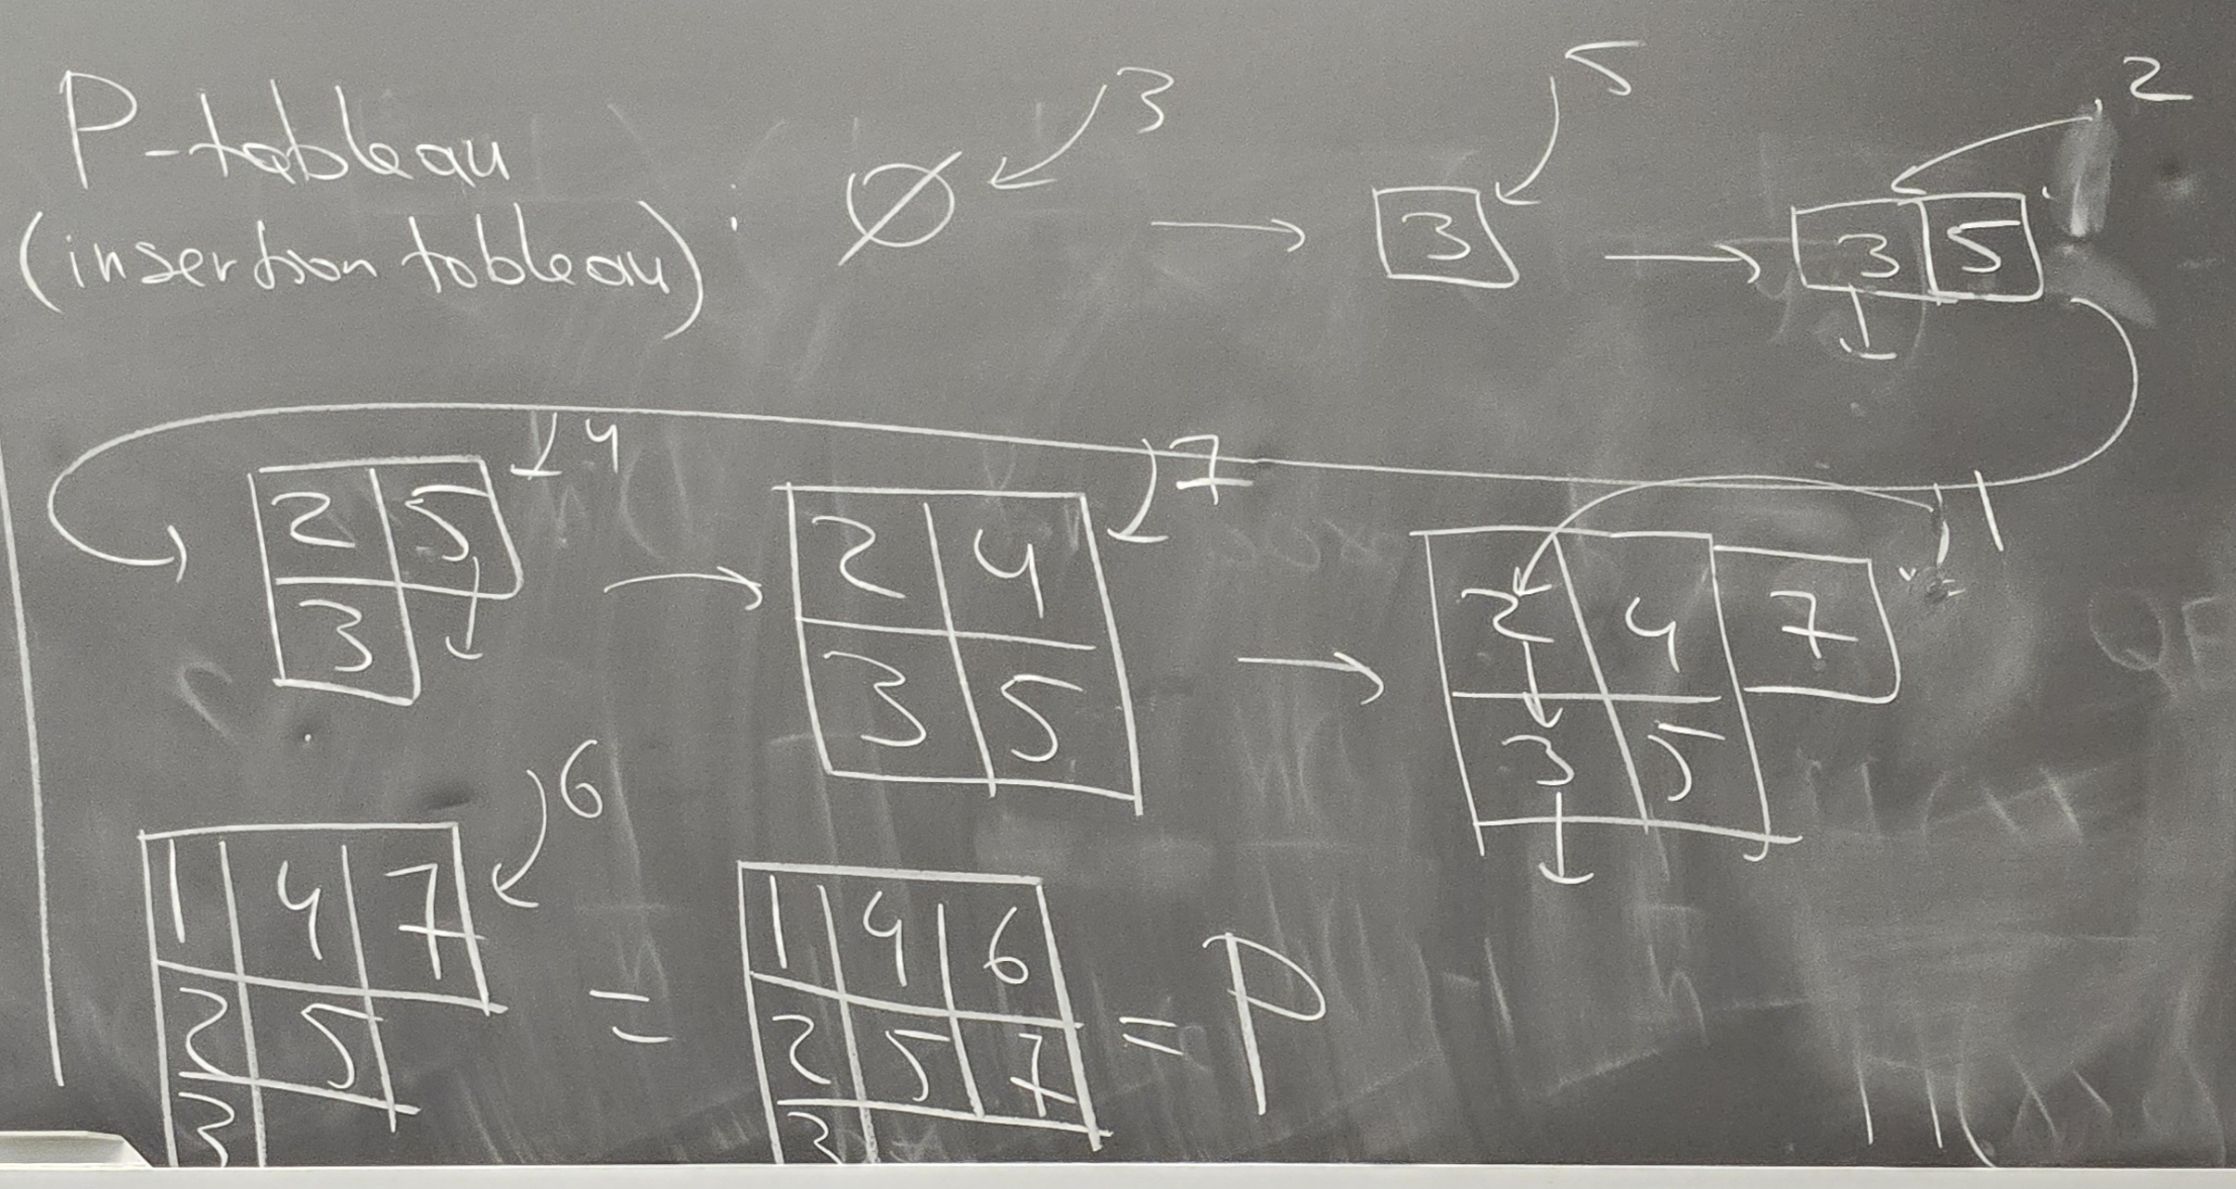 P-tableau
(insertion tableau) : ∅ ← 3 → 3 ← 5 → 3 5 ← 2
2 5 ← 4 → 2 4 ← 7 → 2 4 7 ← 1
3 3 5 3 5
1 4 7 ← 6 = 1 4 6 = P
2 5 2 5 7
3 3